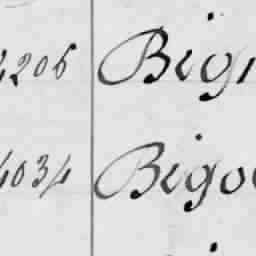 4206 Bign
4034 Bigo